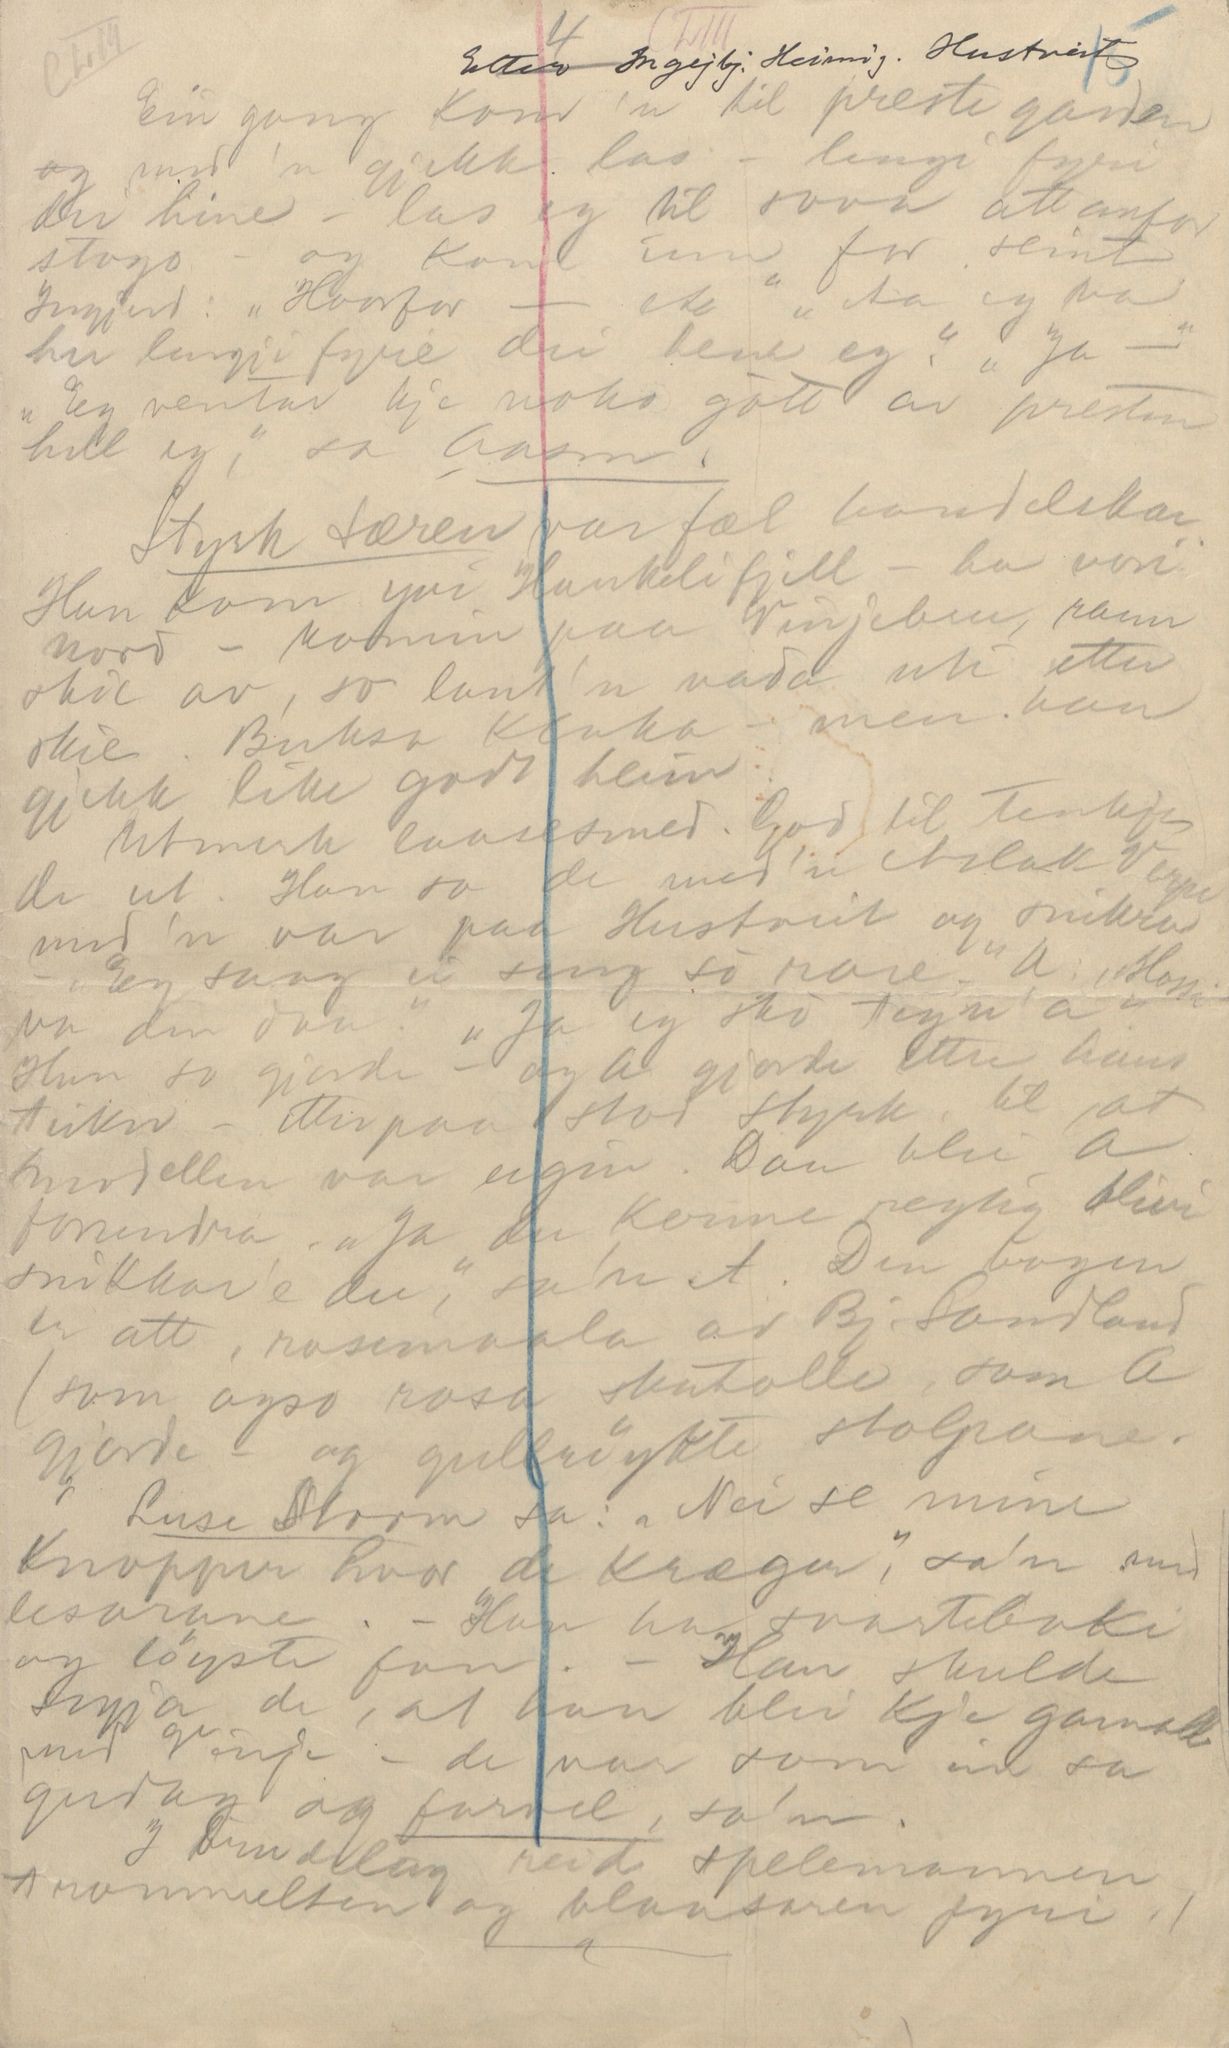 4
LIII
15
Etter Ingejbj. Heimig. Hustveit
Ein gong kom'n til prestegarden
og med'n gjekk las – lengi fyri
dei hine – las eg til sova attanfor
stogo – og kom inn for seint
Ingjerd: "Hvorfor — etc" "Aa eg va
her lengji fyrie dei hene eg". "Ja —"
"Eg ventar kje noko gòtt av presten
hell eg," sa Aasm.
Styrk Særen var fæl handelskar
Han kom yvi Haukelifjell – ha vori
nord – komin paa Vinjebru, rann
skie av, so laut'n vada uti etter
skie. Buksa klaka – men han
gjekk like godt heim.
Utmerk laasesmed. God til tenkje
de ut. Han sa de med'n Aslak
med'n var paa Hustveit og snikra
– "Eg saag ei seng so rare." A: "Hossi
va den daa." "Ja eg sko tegn'a"
Han so gjorde – og A gjorde ette hans
teikn – Etterpaa stod Styrk til at
modellen var eigin. Daa blei A
forundra. "Ja du kunne regtig blivi
snikkar'e du," sa'n A. Den vogen
er att, rosemaala av Bj. Sandland
(som ogso rosa skatolle, som A
gjorde – og gullrøykte stolpane.
Luse Storm sa: "Nei se mine
knopper hvor de kræger," sa'n med
lesarane. – Han ha svarteboki
og løyste fan. – Han skulde
segja de, at han blei kje gamall
med Vinje – de var som ein sa
gudag og farvel, sa'n.
I brudelag reid spelemannen
trommelten og blaasaren fyri.